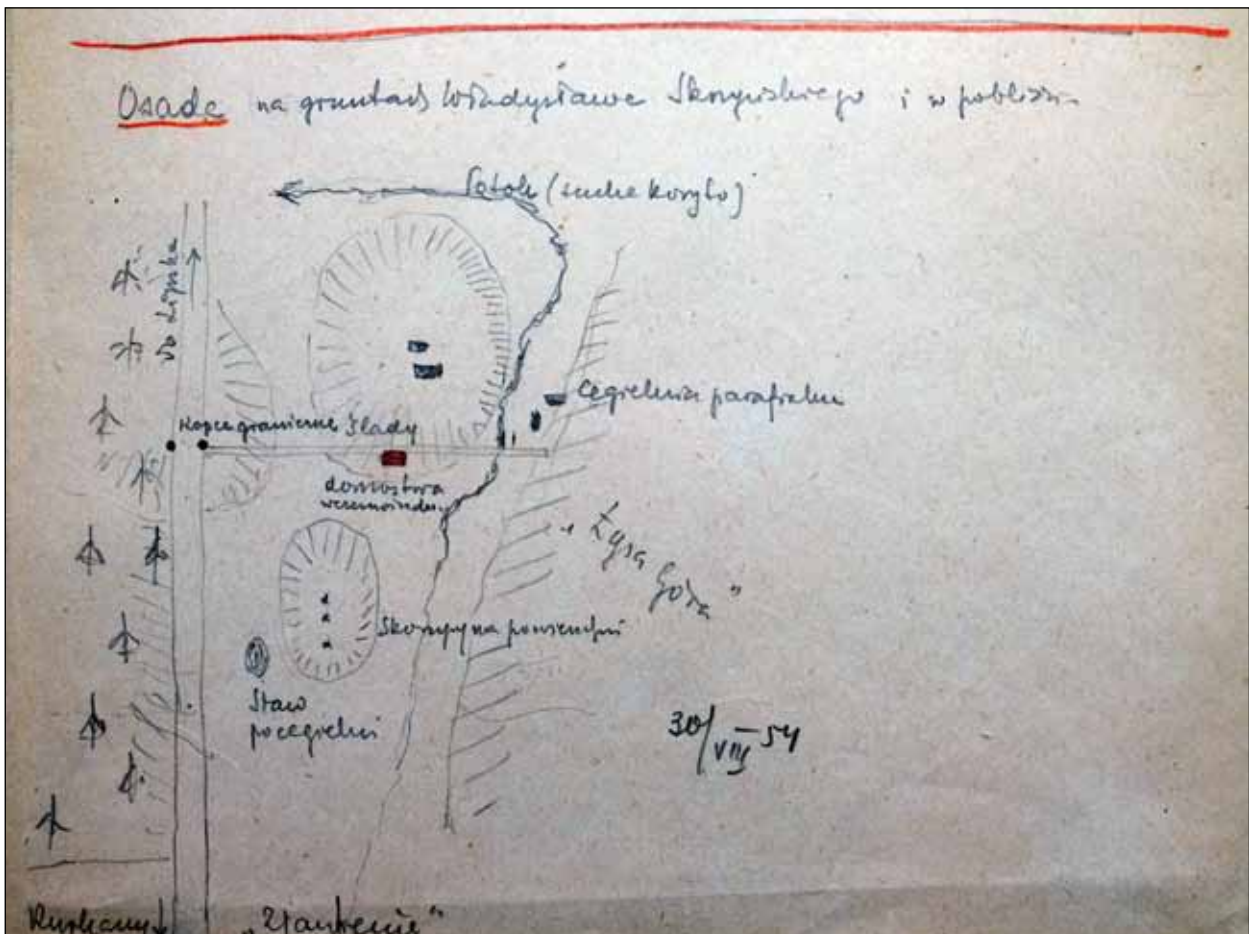 Osada na gruntach Władysława Skoryńskiego i w pobliżu
Potok (suche koryto)
do Lipska
Cegielnia parafialna
Kopce graniczne Ślady
domostwa
"Łysa Góra"
Skorupy na powierzchni
Staw
pocegielni
30/VIII 54